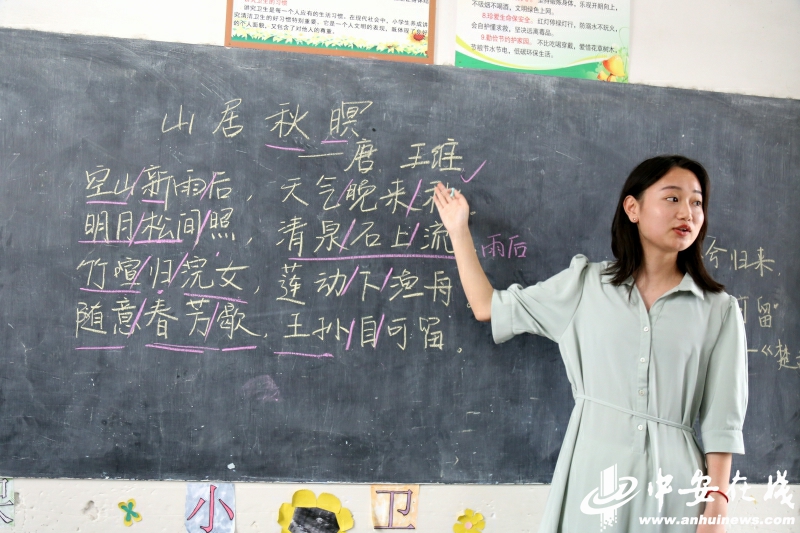 讲究卫生的习惯
讲究卫生是每个人应有的生活习惯。在现代社会中，小学生养成讲
究清洁卫生的好习惯特别重要，它是一个人文明的表现，既体现了自己
的个人面貌，又包含了对他人的尊重。
不吸烟不喝酒，文明绿色上网。
8.珍爱生命保安全。红灯停绿灯行，防溺水不玩火，
会自护懂求救，坚决远离毒品。
9.勤俭节约护家园。不比吃喝穿戴，爱惜花草树木，
节粮节水节电，低碳环保生活。
山居秋暝
——唐 王维
空山新雨后，天气晚来秋。
明月松间照，清泉石上流
竹喧归浣女，莲动下渔舟。
随意春芳歇，王孙自可留。
雨后
兮归来
可留”
—《楚
小
卫
中安在线
www.anhuinews.com